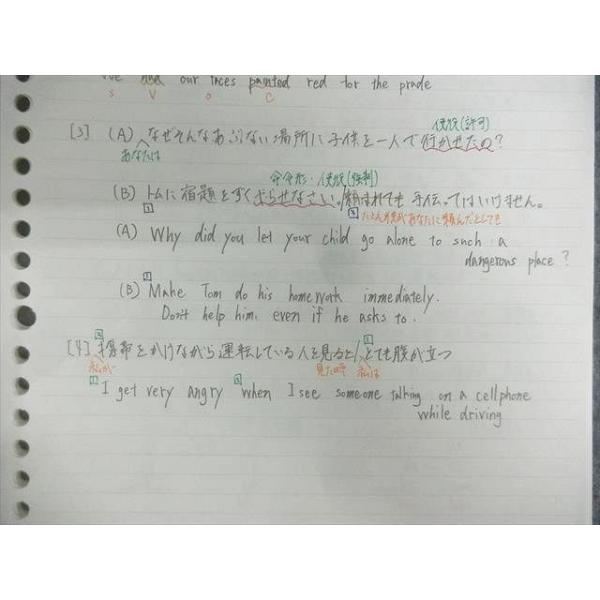 our faces painted red for the prade
S V O C
使役(許可)
[3] (A) なぜそんなあぶない場所に子供を一人で行かせたの?
あなたは
命令形・使役(強制)
(B) トムに宿題をすぐやらせなさい。頼まれても手伝ってはいけません。
たとえ彼があなたに頼んだとしても
(A) Why did you let your child go alone to such a
dangerous place?
(B) Make Tom do his homework immediately.
Don't help him, even if he asks to.
[4] 携帯をかけながら運転している人を見ると/とても腹が立つ
私が 見た時 私は
I get very angry when I see someone talking on a cellphone
while driving